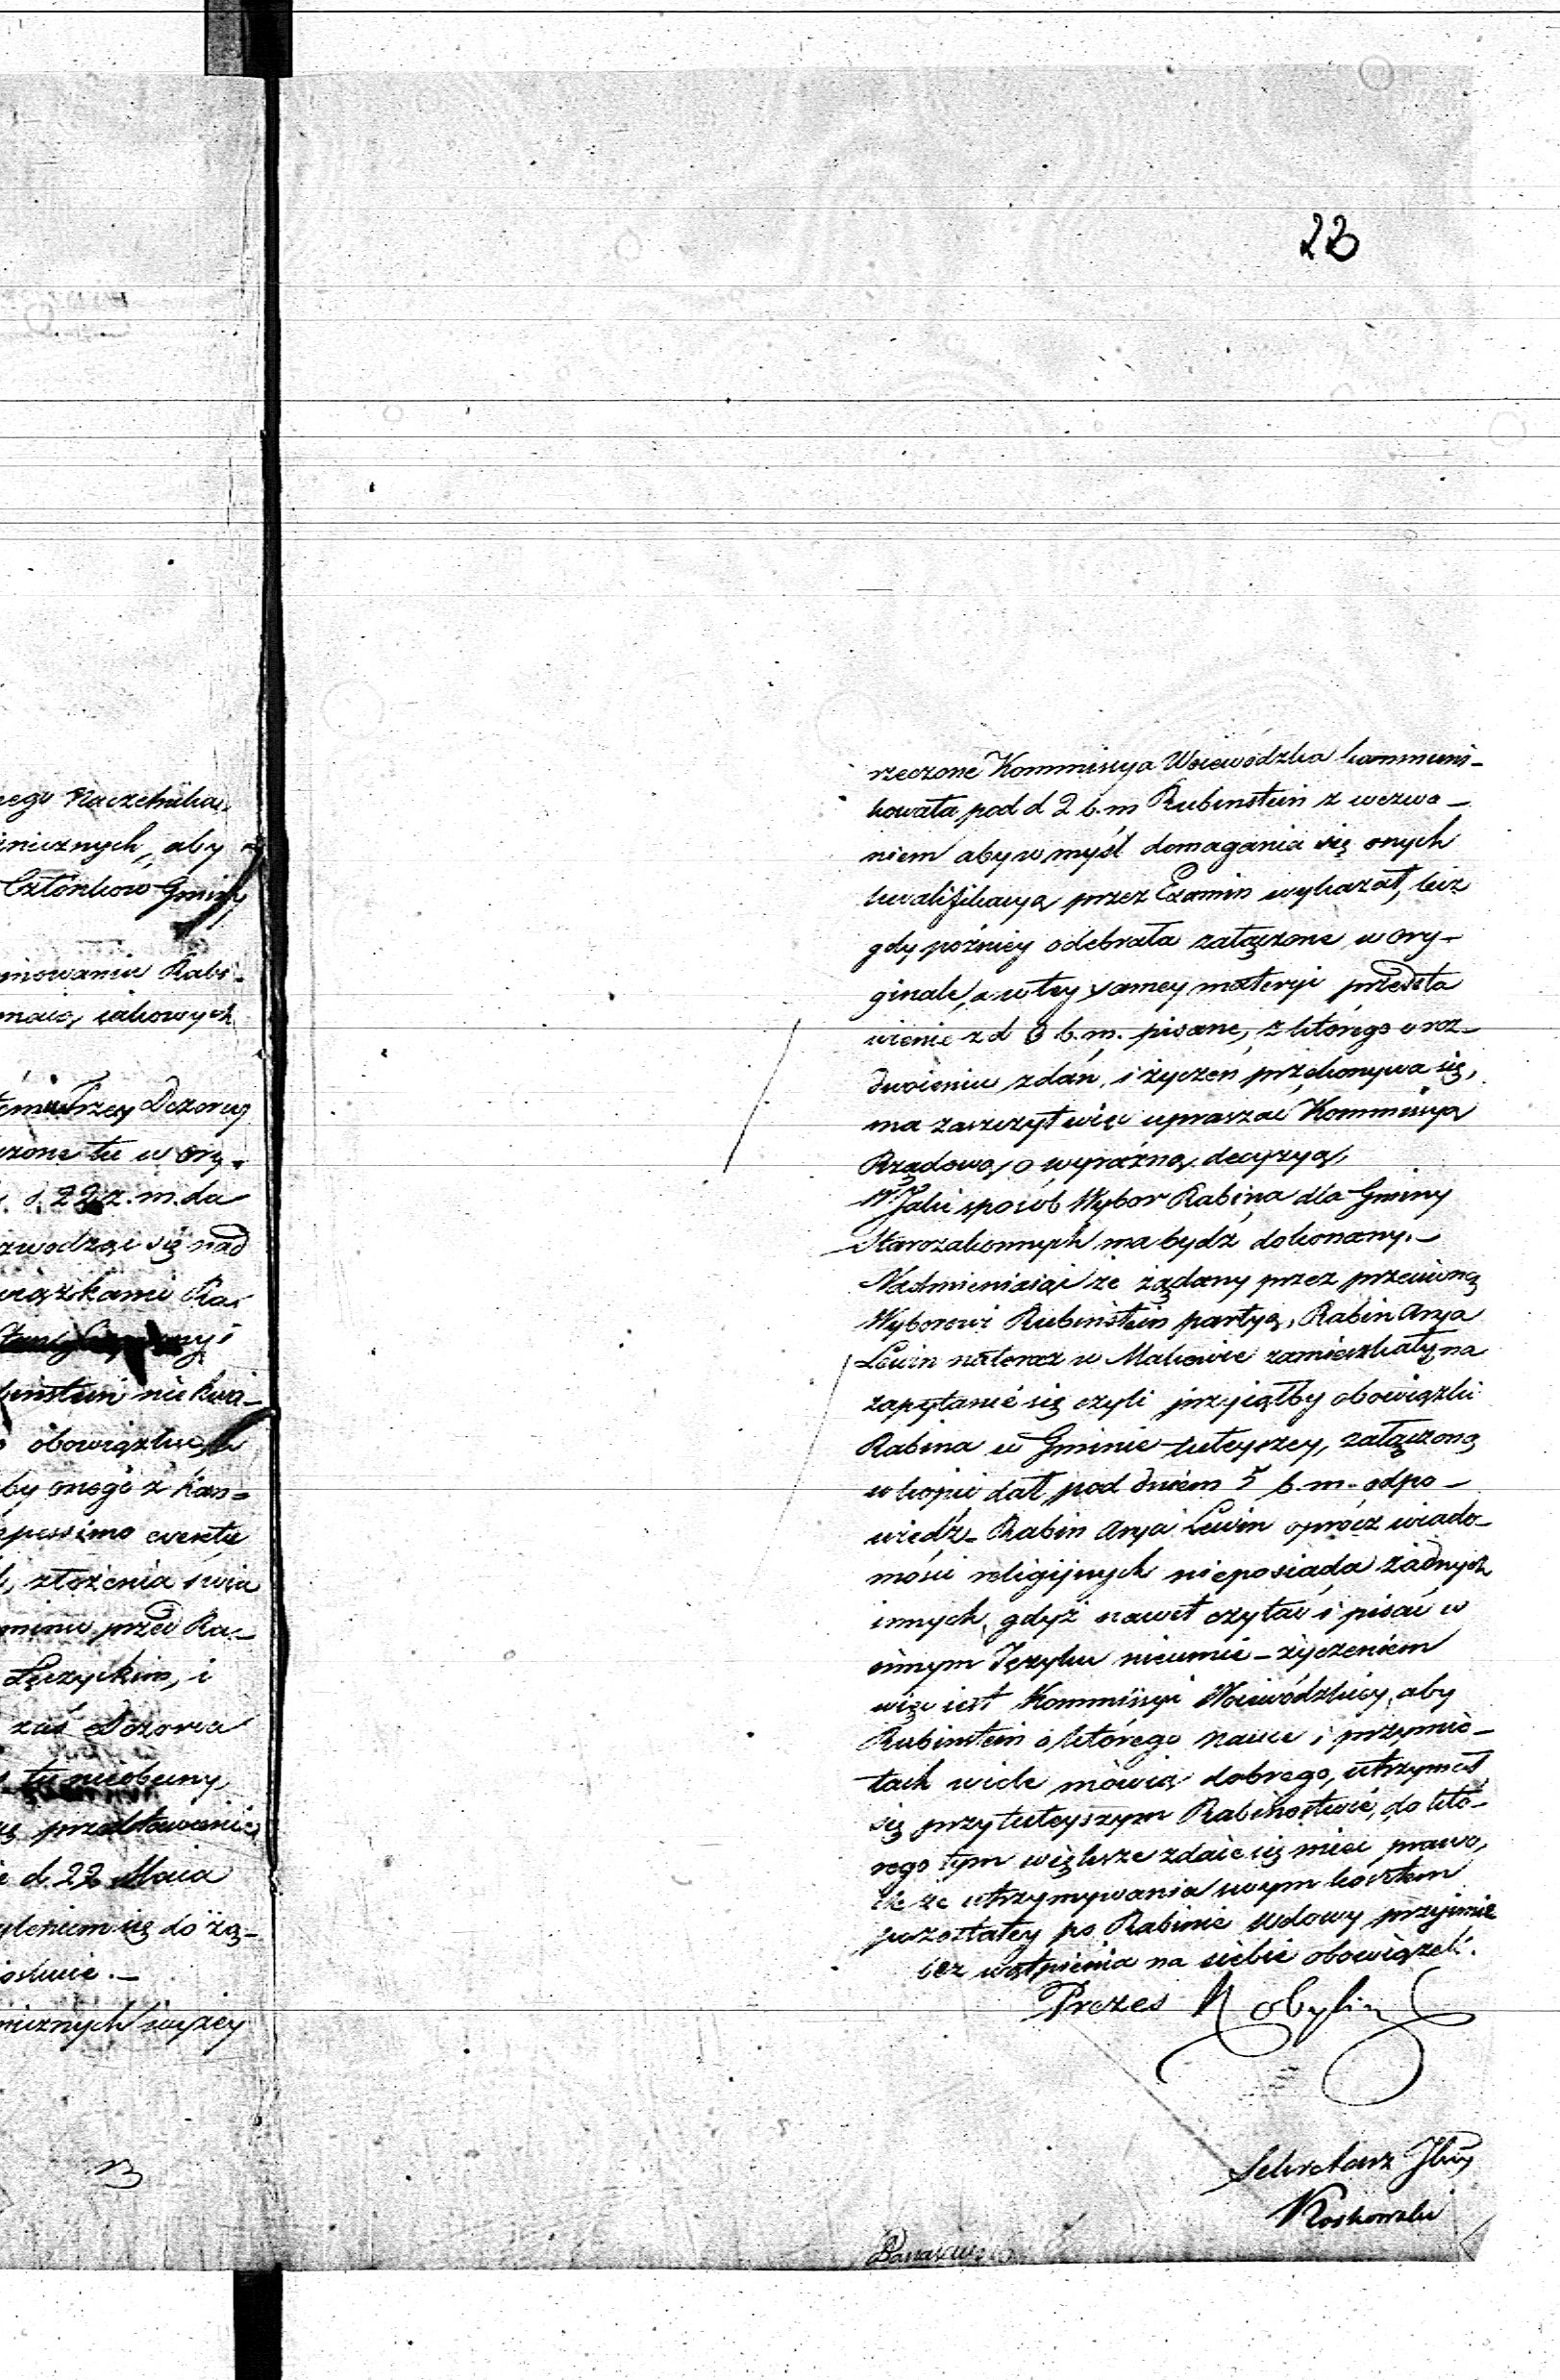 nego Naczelnika
icznych, aby
Członków Gminy
Rabi-
iakowych
Trzey Dozoru
czone tu w ory-
d. 22 z. m. da
zwodząc się nad
wiązkami Ra-
binstein nie kwa-
obowiązku
by onego z kon-
pessimo eventu
złożenia
minu przed Ra-
Łęczyckim, i
zaś Dozoru
tu nieobecny,
przedstawienie
d. 22 Maia
yleniem się do żą-
ostwie. —
nicznych wyżey
23
rzeczone Kommissya Woiewódzka kommuni-
kowała pod d 2 b. m Rubinstein z wezwa-
niem aby w myśl domagania się onych
kwalifikacyą przez Examin wykazał, lecz
gdy poźniey odebrała załączone w ory-
ginale, a w tey samey materyi przedsta
wienie z d 3 b. m. pisane, z którego o roz-
dwoieniu zdań i życzeń przekonywa się,
ma zaszczyt więc upraszać Kommissyą
Rządową o wyraźną decyzyą,
W Jaki sposób Wybor Rabina dla Gminy
Starozakonnych ma bydź dokonany. —
Nadmieniaiąc że żądany przez przeciwną
Wyborowi Rubinstein partyą, Rabin Arya
Lewin nateraz w Makowie zamieszkały na
zapytanie się czyli przyiąłby obowiązki
Rabina w Gminie tuteyszey, załączoną
w kopii dał pod dniem 5 b. m. odpo-
wiedź — Rabin Arya Lewin oprócz wiado-
mości religijnych nieposiada żadnych
innych, gdyż nawet czytać i pisać w
innym Języku nieumie — życzeniem
więc iest Kommissyi Woiewódzkiey, aby
Rubinstein o którego nauce i przymio-
tach wiele mówią dobrego, utrzymał
się przy tuteyszym Rabinostwie, do któ-
rego tym większe zdaie się mieć prawo,
ile że utrzymywania swym kosztem
pozostałey po Rabinie Wdowy przyimie
bez wątpienia na siebie obowiązek.
Prezes Kobylin
Sekretarz Jlny